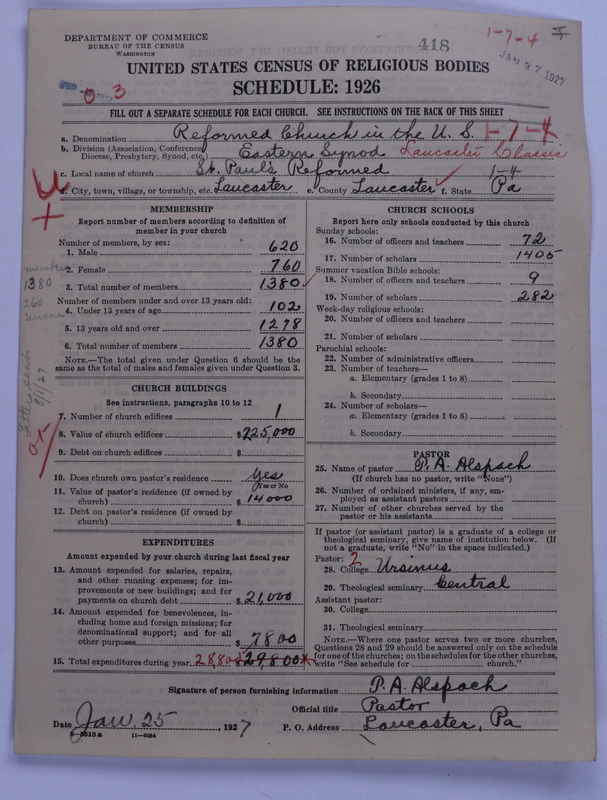 DEPARTMENT OF COMMERCE
BUREAU OF THE CENSUS
WASHINGTON
418
1-7-4
JAN 27 1927
UNITED STATES CENSUS OF RELIGIOUS BODIES
SCHEDULE: 1926
0 3
FILL OUT A SEPARATE SCHEDULE FOR EACH CHURCH. SEE INSTRUCTIONS ON THE BACK OF THIS SHEET
a. Denomination Reformed Church in the U. S. 1-7-4
b. Division (Association, Conference, Diocese, Presbytery, Synod, etc.) Eastern Synod Lancaster Classis
c. Local name of church St. Paul's Reformed 1-4
d. City, town, village, or township, etc. Lancaster e. County Lancaster f. State Pa
MEMBERSHIP
Report number of members according to definition of
member in your church
Number of members, by sex:
1. Male 620
2. Female 760
3. Total number of members 1380
Number of members under and over 13 years old:
4. Under 13 years of age 102
5. 13 years old and over 1278
6. Total number of members 1380
NOTE.—The total given under Question 6 should be the
same as the total of males and females given under Question 3.
members
1380
260
CHURCH BUILDINGS
See instructions, paragraphs 10 to 12
7. Number of church edifices 1
8. Value of church edifices $225,000
9. Debt on church edifices $
10. Does church own pastor's residence Yes
Yes or No
11. Value of pastor's residence (if owned by
church) $14000
12. Debt on pastor's residence (if owned by
church) $
EXPENDITURES
Amount expended by your church during last fiscal year
13. Amount expended for salaries, repairs,
and other running expenses; for im-
provements or new buildings; and for
payments on church debt $21,000
14. Amount expended for benevolences, in-
cluding home and foreign missions; for
denominational support; and for all
other purposes $7800
15. Total expenditures during year 28,800 $29,800
CHURCH SCHOOLS
Report here only schools conducted by this church
Sunday schools:
16. Number of officers and teachers 72
17. Number of scholars 1405
Summer vacation Bible schools:
18. Number of officers and teachers 9
19. Number of scholars 282
Week-day religious schools:
20. Number of officers and teachers
21. Number of scholars
Parochial schools:
22. Number of administrative officers
23. Number of teachers—
a. Elementary (grades 1 to 8)
b. Secondary
24. Number of scholars—
a. Elementary (grades 1 to 8)
b. Secondary
PASTOR
25. Name of pastor P. A. Alspach
(If church has no pastor, write "None")
26. Number of ordained ministers, if any, em-
ployed as assistant pastors
27. Number of other churches served by the
pastor or his assistants
If pastor (or assistant pastor) is a graduate of a college or
theological seminary, give name of institution below. (If
not a graduate, write "No" in the space indicated.)
Pastor: 2
28. College Ursinus
29. Theological seminary Central
Assistant pastor:
30. College
31. Theological seminary
NOTE.—Where one pastor serves two or more churches,
Questions 28 and 29 should be answered only on the schedule
for one of the churches; on the schedules for the other churches,
write "See schedule for church."
Signature of person furnishing information P. A. Alspach
Official title Pastor
Date Jan 25, 1927 P. O. Address Lancaster, Pa
11—9024